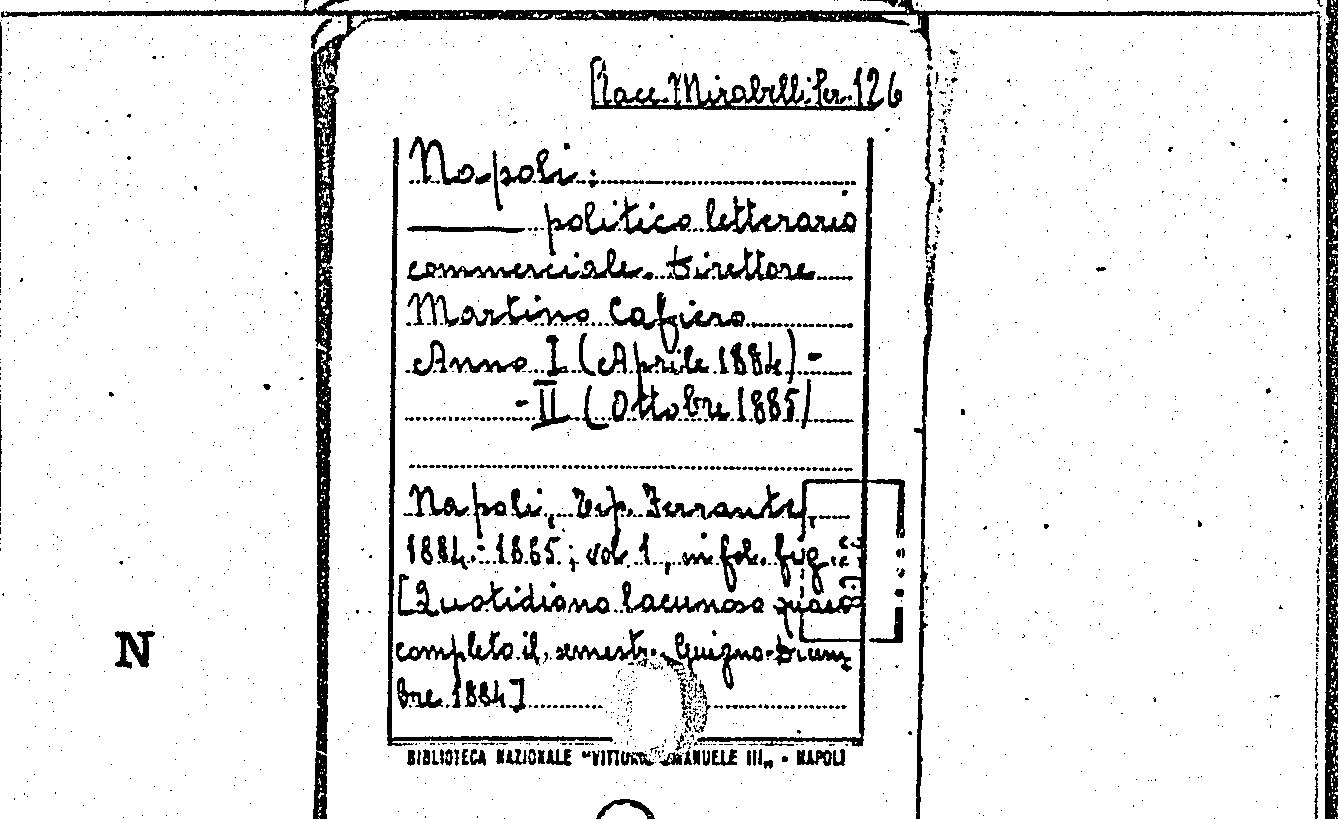 Racc. Mirabelli Per. 126
Napoli:
politico letterario
commerciale. Direttore
Martino Cafiero
Anno I (Aprile 1884) -
- II (Ottobre 1885)
Napoli, Tip. Ferrante,
1884.-1885; vol. 1, in fol. fig.
[Quotidiano lacunoso quasi
completo il semestr. Guigno-Dicem
bre 1884]
N
BIBLIOTECA NAZIONALE "VITTORIO EMANUELE III„ - NAPOLI